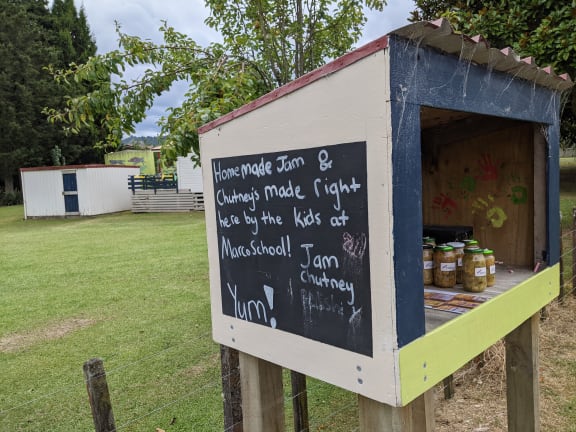 Homemade Jam &
Chutney's made right
here by the kids at
Marco School!
Jam
Chutney
Yum!